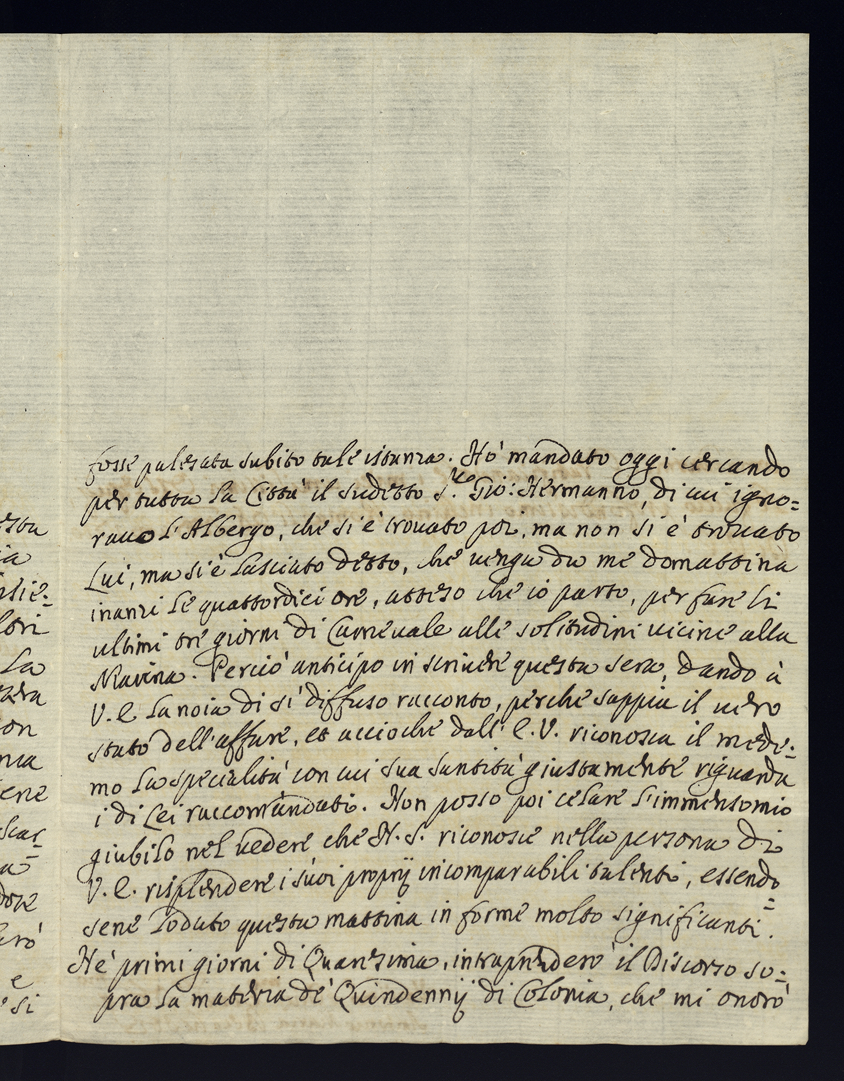 fosse palesata subito tale istanza. Hò mandato oggi cercando
per tutta la Città il sudetto S.r Gio: Hermanno, di cui igno=
ravo l'Albergo, che si è trovato poi, ma non si è trovato
Lui, ma si è lasciato detto, che venga da me domattina
inanzi le quattordici ore, atteso che io parto, per fare li
ultimi tre giorni di Carnevale alle solitudini vicine alla
Marina. Perciò anticipo in scrivere questa sera, dando à
V. E. la noia di sì diffuso racconto, perche sappia il vero
stato dell'affare, et accioche dall'E. V. riconosca il mede=
mo la specialità con cui sua santità giustamente riguarda
i di Lei raccomandati. Non posso poi celare l'immenso mio
giubilo nel vedere che N. S. riconosce nella persona di
V. E. risplendere i suoi proprij incomparabili talenti, essendo=
sene lodato questa mattina in forme molto significanti.
Ne' primi giorni di Quaresima, intraprenderò il Discorso so=
pra la materia de' Quindennij di Colonia, che mi onorò
esta
ia
lie=
lori
La
on
ene
rò
e
si